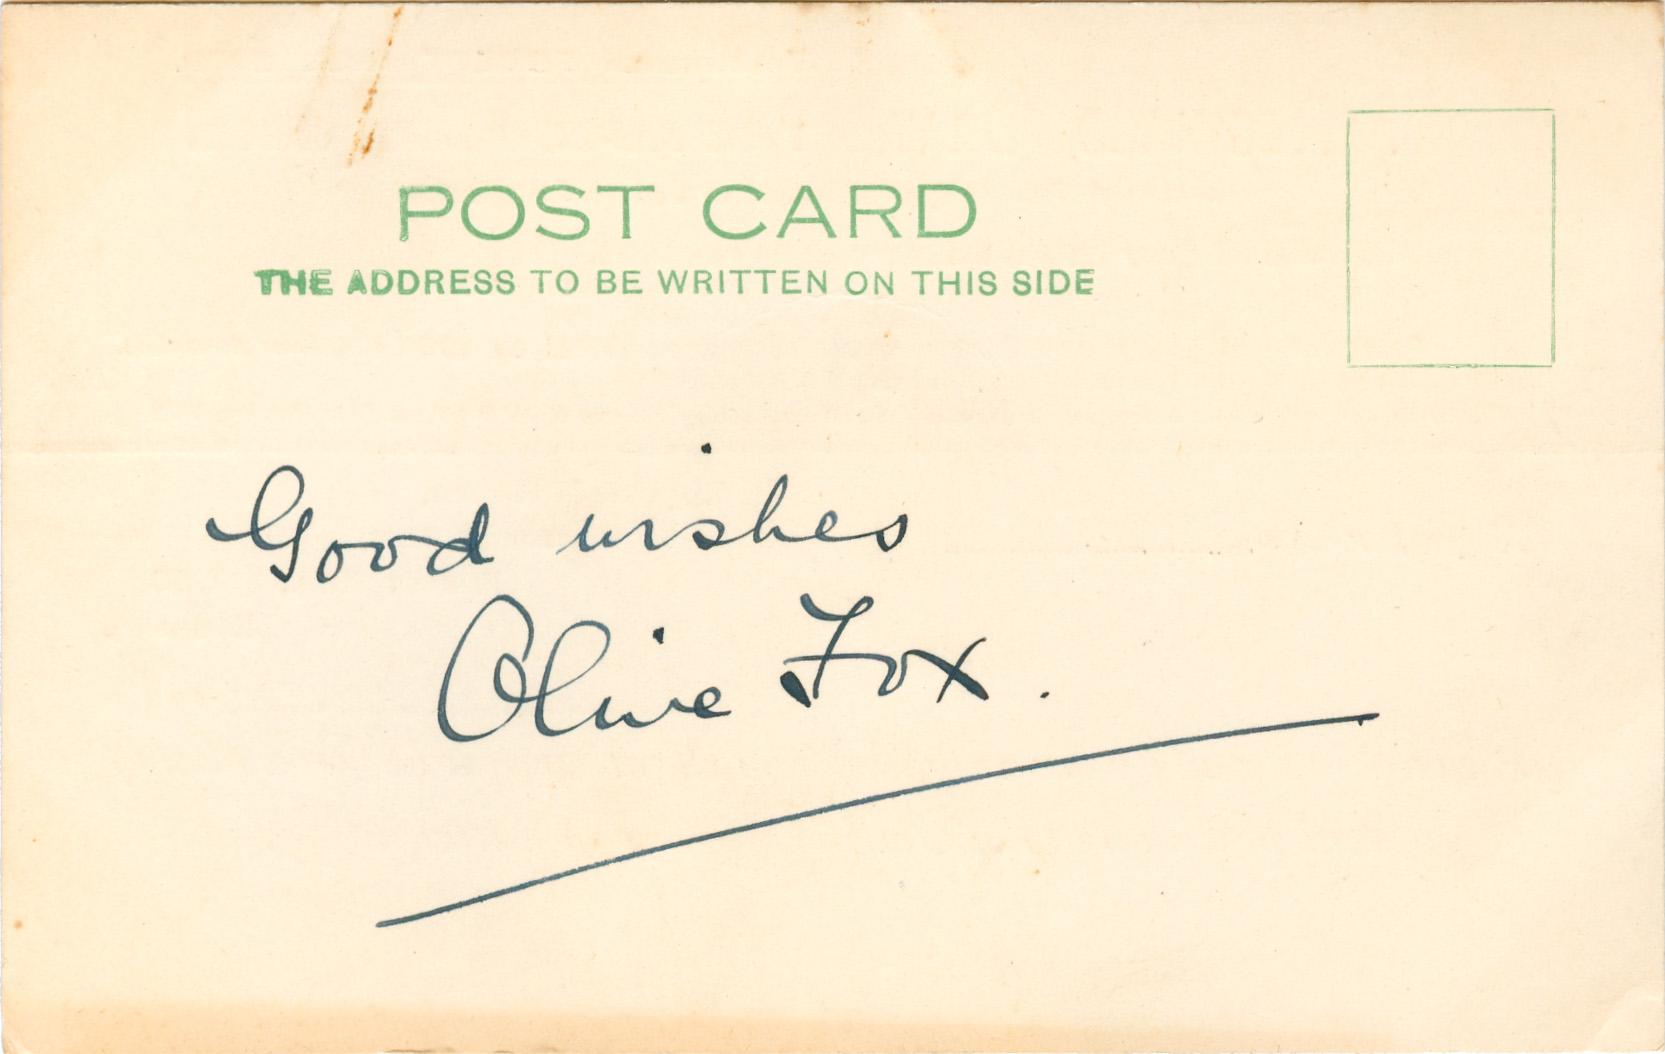 POST CARD
THE ADDRESS TO BE WRITTEN ON THIS SIDE
Good wishes
Olive Fox.